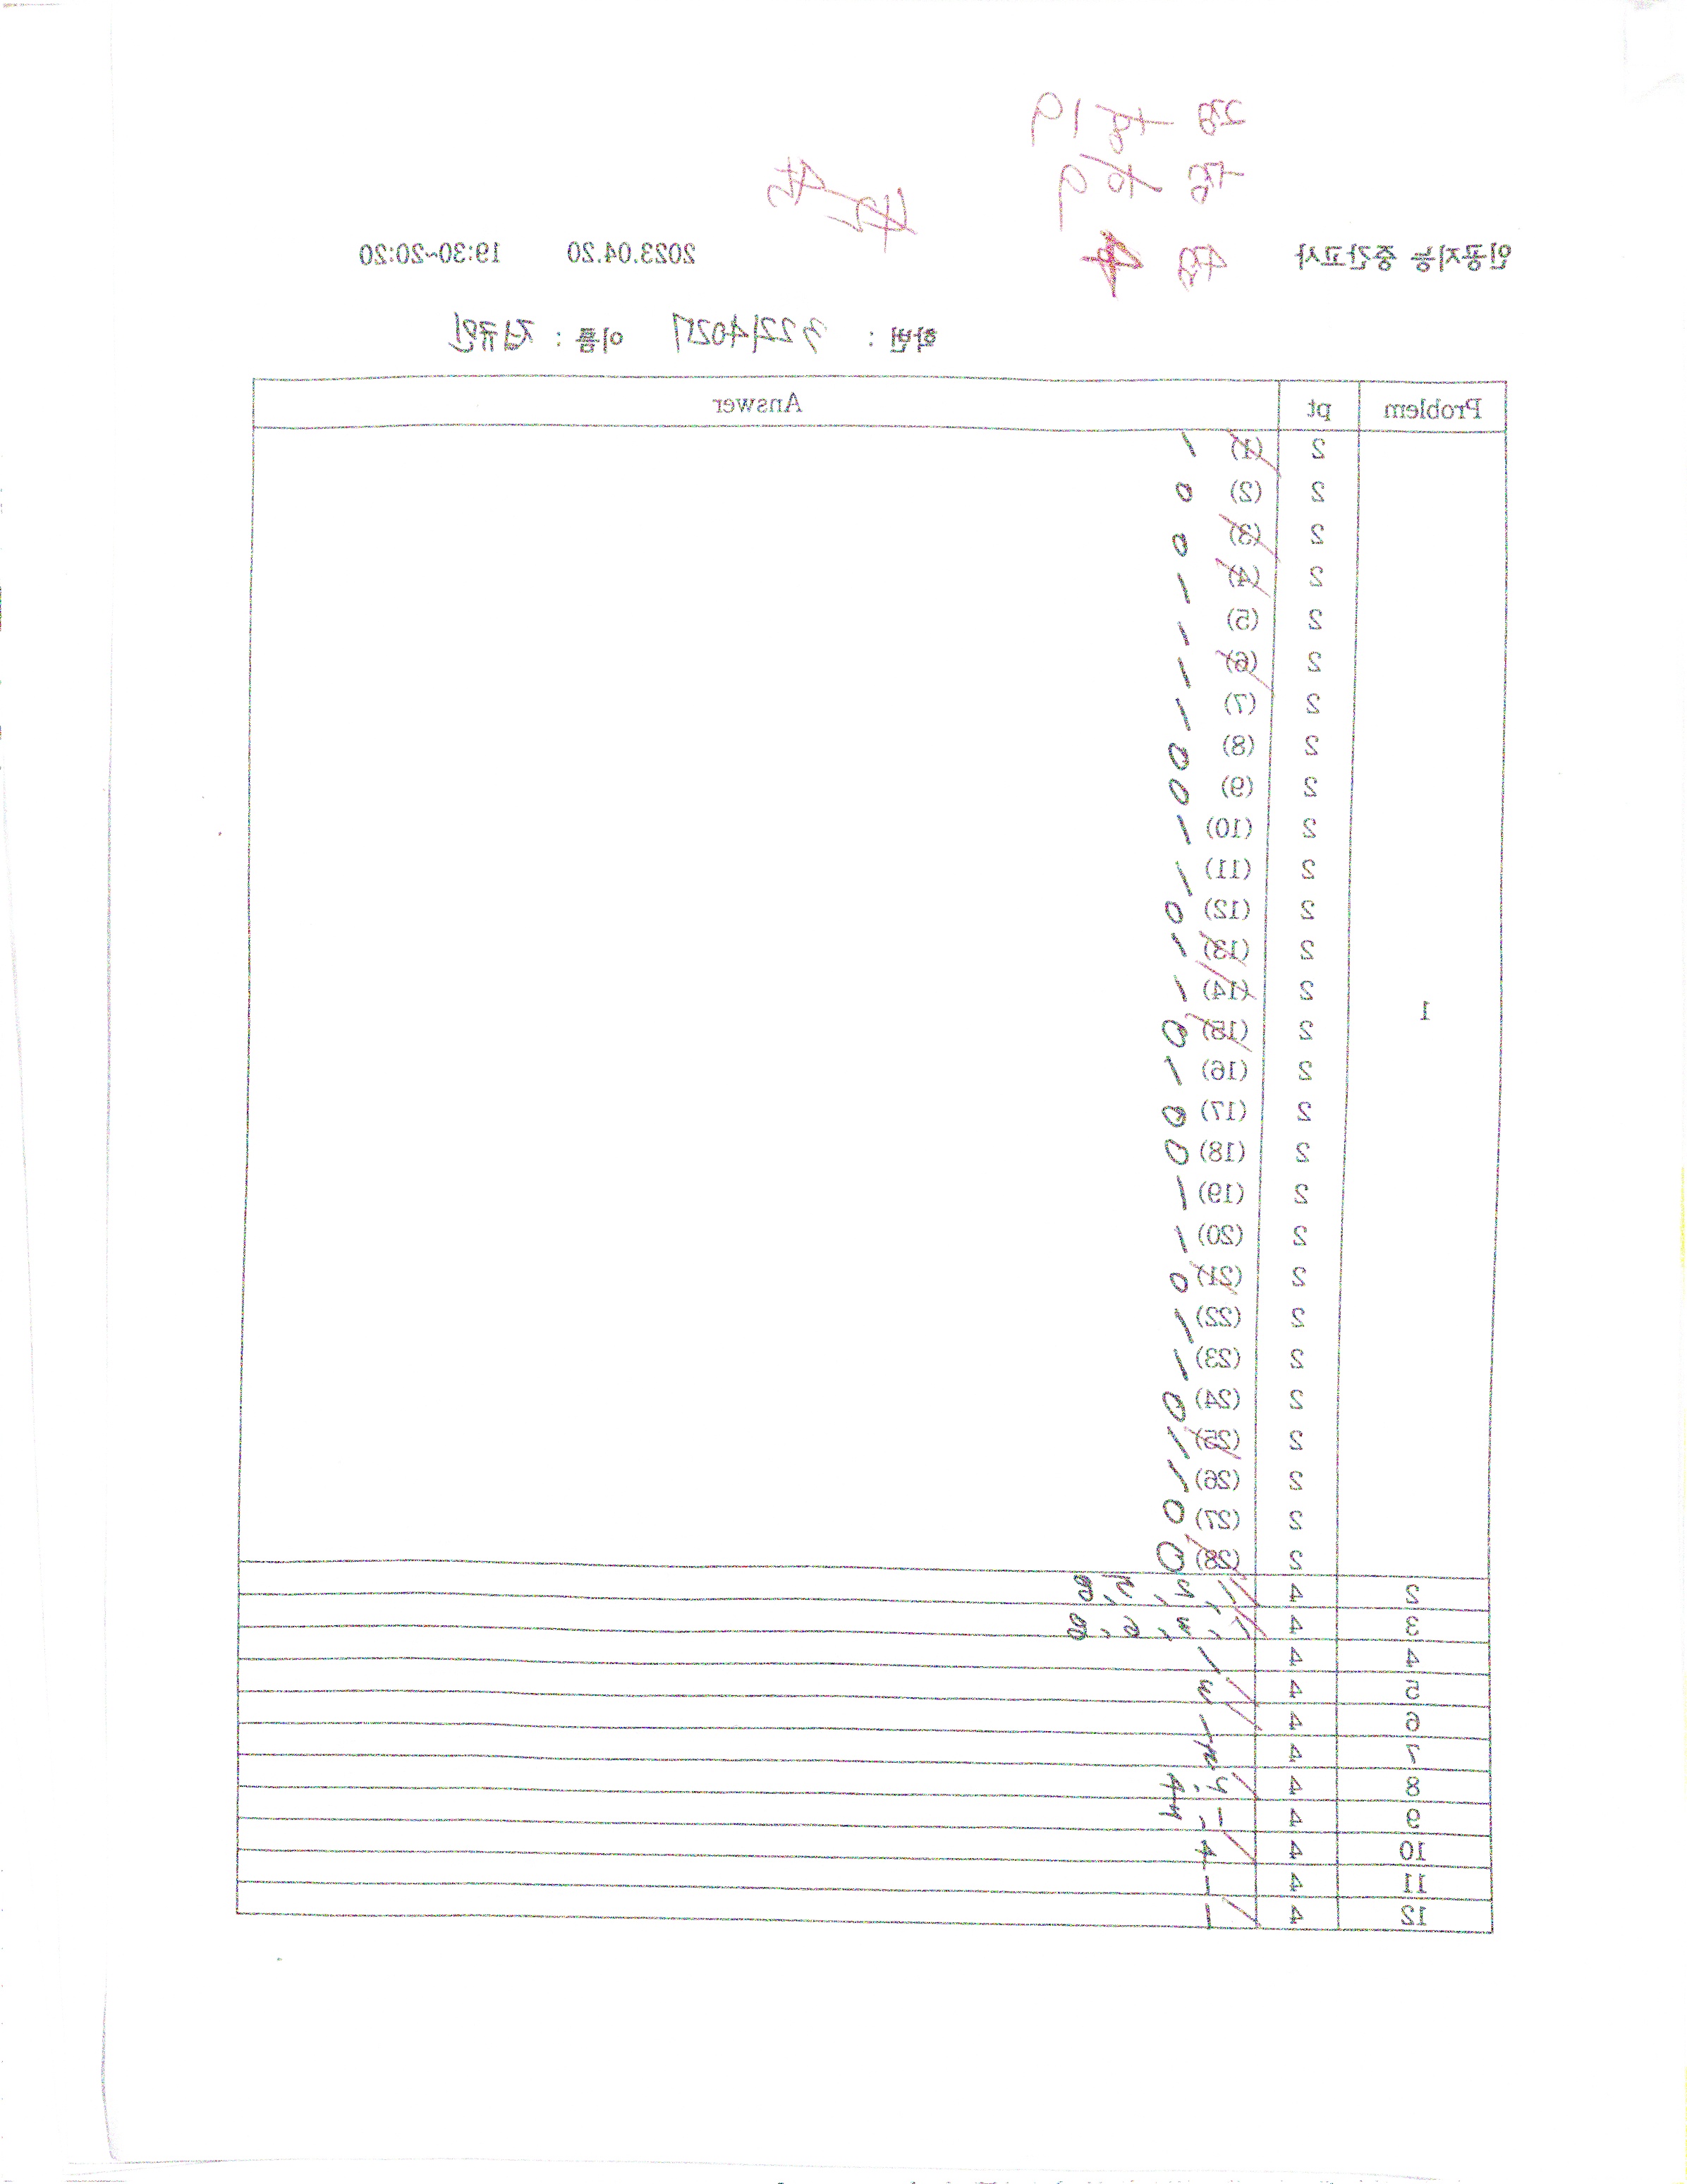 2점
1점
4점
인공지능 중간고사 2023.04.20 19:30~20:20
학번 : 32214027 이름 : 정규민
Problem pt Answer
1
2 (1) 1
2 (2) 0
2 (3) 0
2 (4) 1
2 (5) 1
2 (6) 1
2 (7) 1
2 (8) 0
2 (9) 0
2 (10) 1
2 (11) 1
2 (12) 0
2 (13) 1
2 (14) 1
2 (15) 0
2 (16) 1
2 (17) 0
2 (18) 0
2 (19) 1
2 (20) 1
2 (21) 0
2 (22) 1
2 (23) 1
2 (24) 0
2 (25) 1
2 (26) 1
2 (27) 0
2 (28) 0
2 4 1, 2, 5, 8
3 4 1, 3, 6, 8
4 4 1
5 4 3
6 4 1
7 4
8 4
9 4
10 4 4
11 4 1
12 4 1